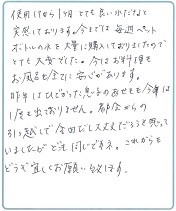 使用してから1ヶ月 とても良い水だなと
実感しております。今までは毎週ペット
ボトルの水を大量に購入しておりましたので
とても大変でした。今はお料理も
お風呂も全てに安心があります。
昨年はひどかった息子のあせもも今年は
1度も出ておりません。都会からの
引っ越しで全然だし大丈夫だろうと思って
いましたがどこも同じですネ。これからも
どうぞ宜しくお願い致します。